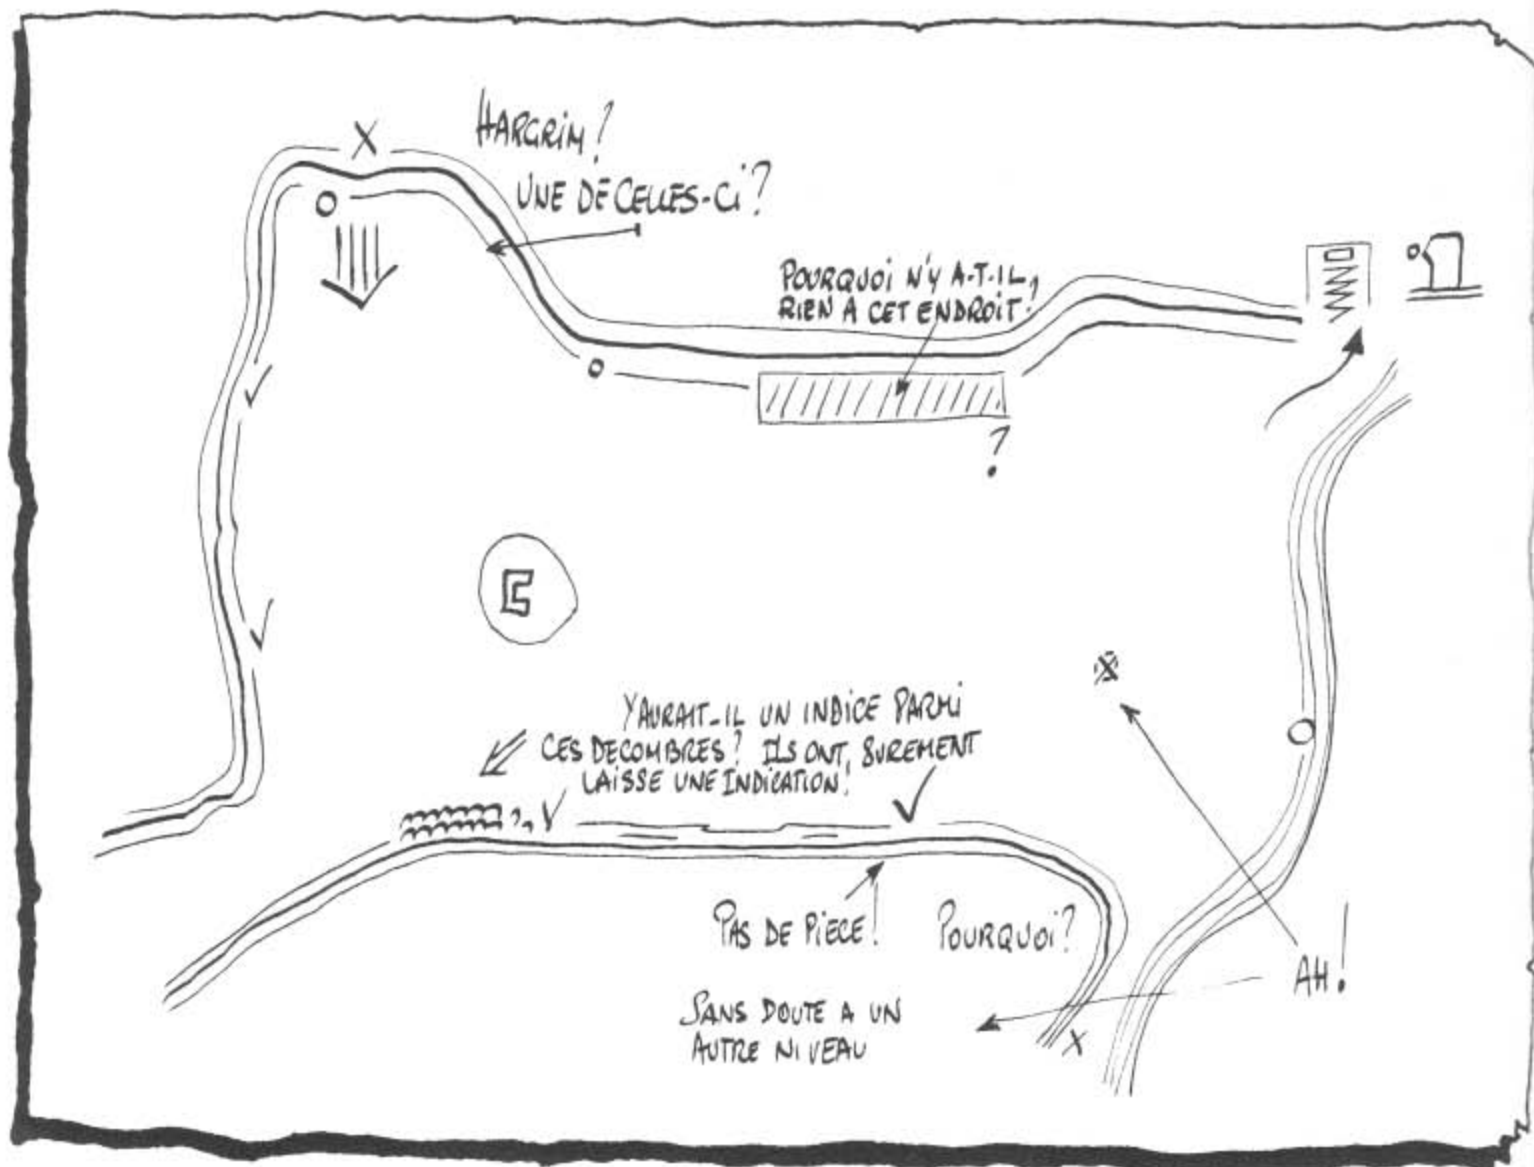 HARGRIM?
UNE DE CELLES-Ci?
POURQUOi N'Y A-T-iL,
RiEN A CET ENDROiT?
?
Y AURAIT-IL UN INDICE PARMi
CES DECOMBRES? ILS ONT, SUREMENT
LAiSSE UNE INDiCATION!
PAS DE PiECE! POURQUOi?
AH!
SANS DOUTE A UN
AUTRE NiVEAU